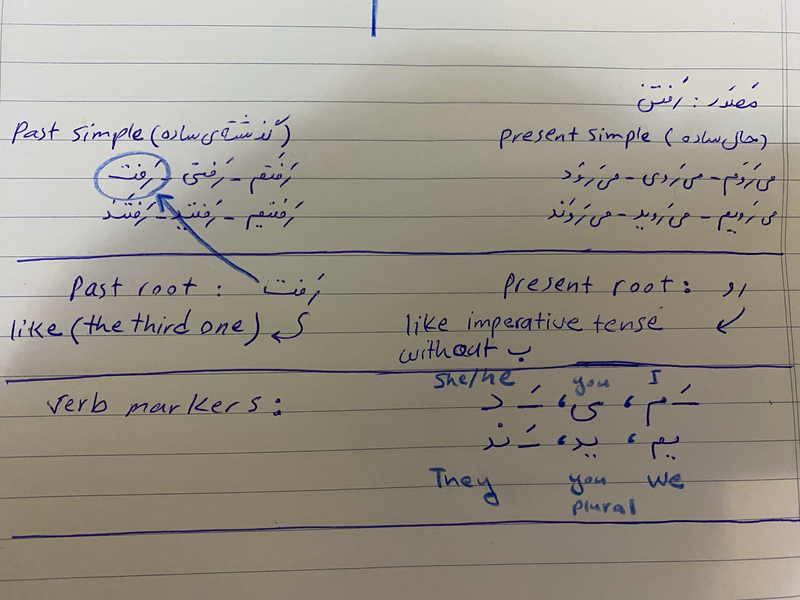 مَصدَر : رَفتَن
Past simple (گذَشته‌ی ساده)
رَفتَم – رَفتی – رَفت
رَفتیم – رَفتید – رَفتَند
present simple (حال ساده)
می‌رَوَم – می‌رَوی – می‌رَوَد
می‌رَویم – می‌رَوید – می‌رَوَند
Past root : رَفت
like (the third one)
present root : رو
like imperative tense
without ب
verb markers :
she/he you I
ـَ م ، ی ، ـَ د
یم ، ید ، ـَ ند
They you we
plural